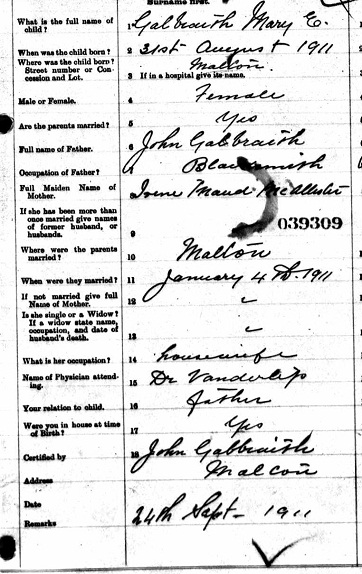 Surname first.
What is the full name of child?
1 Galbraith Mary E.
When was the child born?
2 31st August 1911
Where was the child born?
Street number or Concession and Lot.
Malton.
3 If in a hospital give its name.
Male or Female.
4 Female
Are the parents married?
5 Yes
Full name of Father.
6 John Galbraith
Occupation of Father?
7 Blacksmith
Full Maiden Name of Mother.
8 Irene Maud McAllister
If she has been more than once married give names of former husband, or husbands.
9
039309
Where were the parents married?
10 Malton
When were they married?
11 January 4th. 1911
If not married give full Name of Mother.
12 "
Is she single or a Widow?
If a widow state name, occupation, and date of husband's death.
13 "
What is her occupation?
14 housewife
Name of Physician attending.
15 Dr Vanderlip
Your relation to child.
16 father
Were you in house at time of Birth?
17 Yes
Certified by
18 John Galbraith
Address
Malton
Date
24th Sept - 1911
Remarks